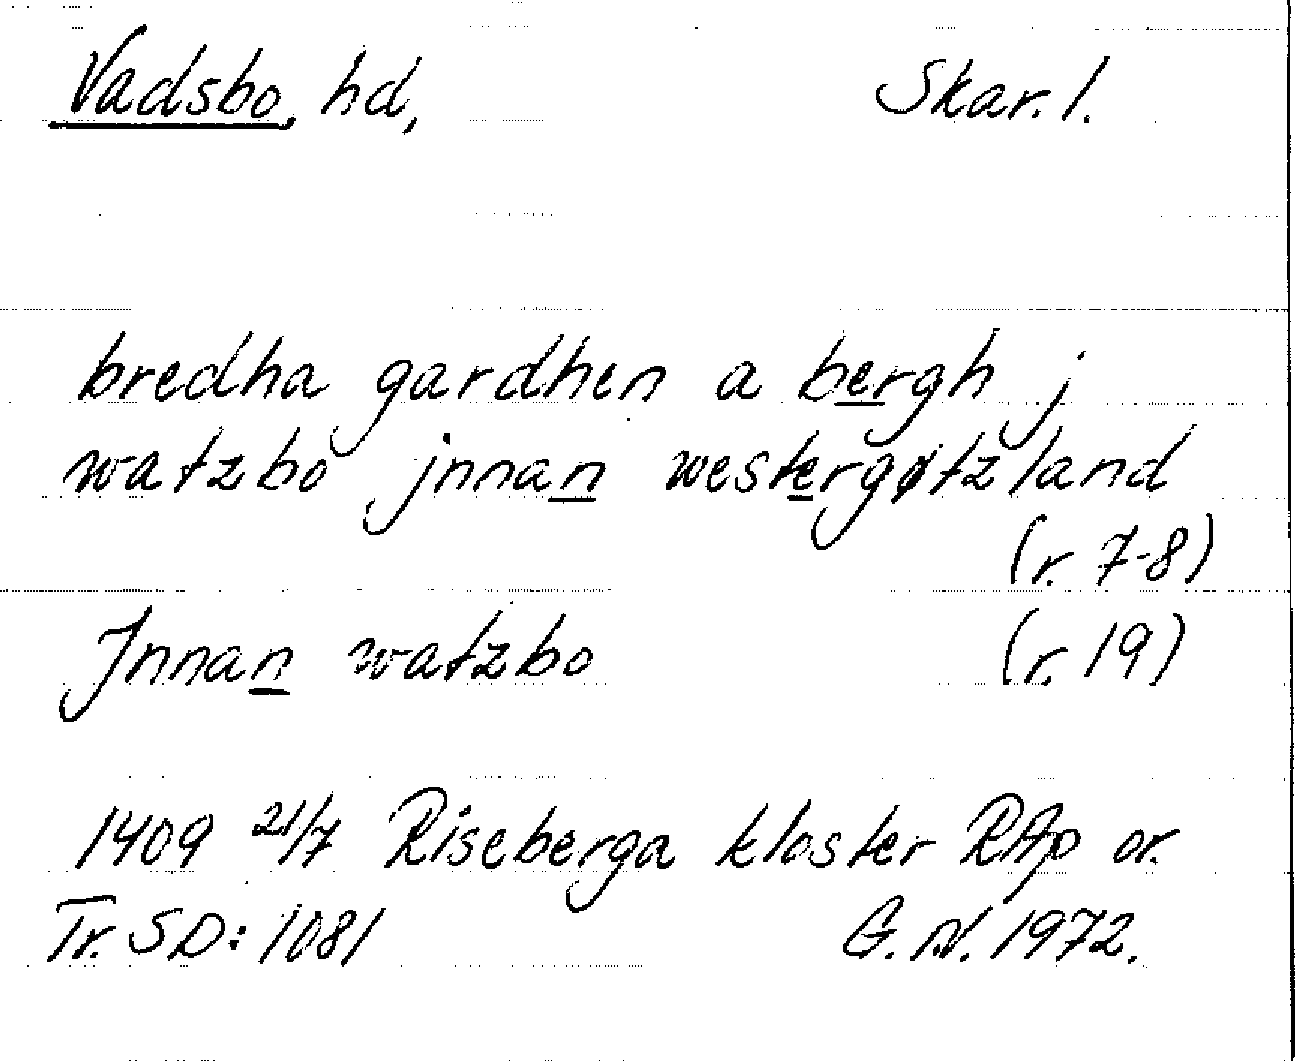 Vadsbo, hd, Skar. l.
bredha gardhen a bergh j
watzbo jnnan westergøtzland
(r. 7-8)
Jnnan watzbo (r. 19)
1409 21/7 Riseberga kloster RAp or.
Tr. SD: 1081 G.N. 1972.